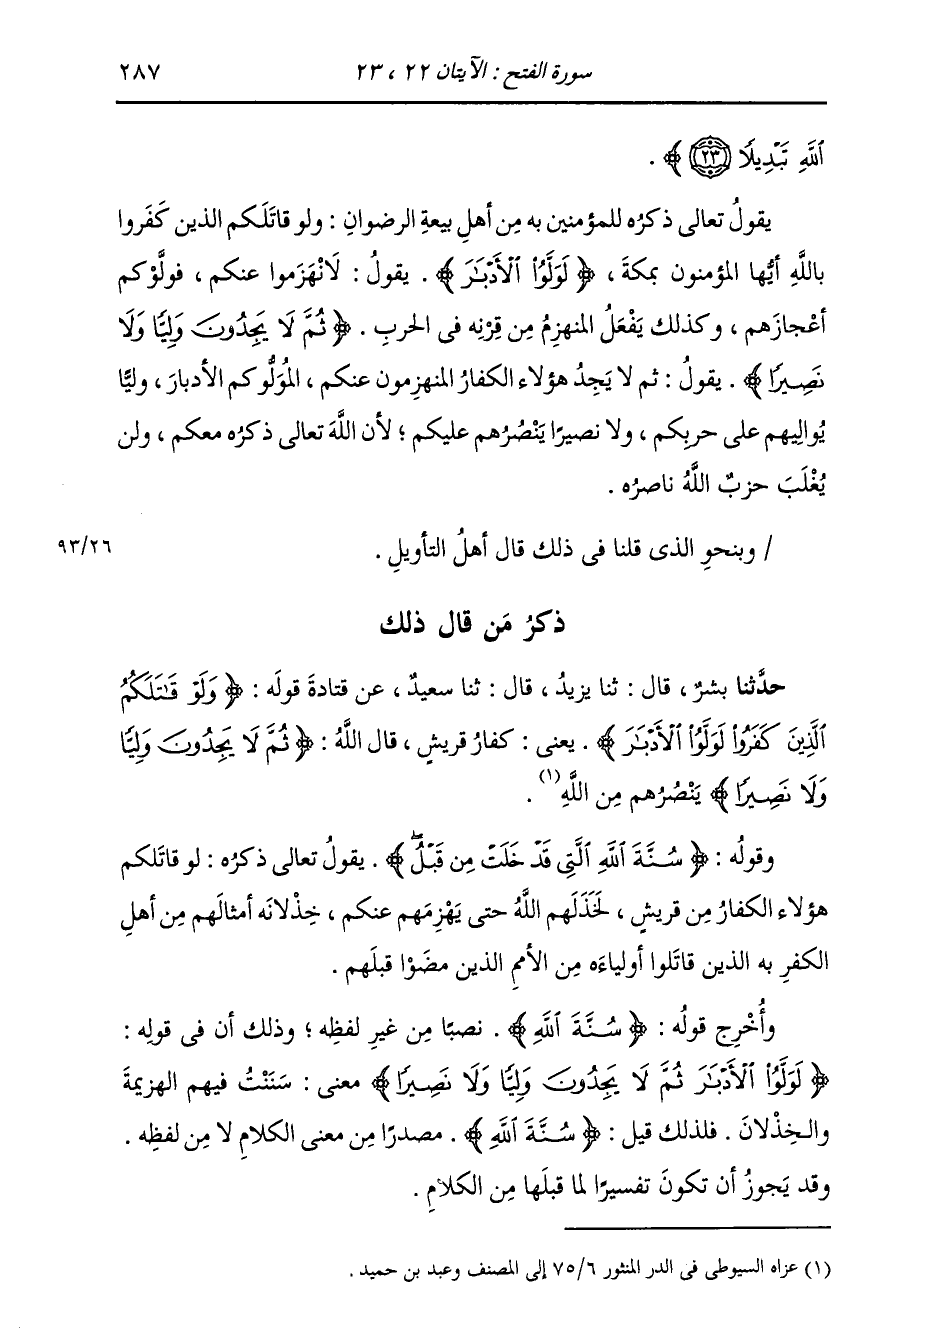 سورة الفتح : الآيتان ٢٢ ، ٢٣ ٢٨٧
ٱللَّهِ تَبْدِيلًا ٢٣ ﴾ .
يقولُ تعالى ذكرُه للمؤمنين به مِن أهلِ بيعةِ الرضوانِ : ولو قاتَلَكم الذين كَفَروا
باللَّهِ أيُّها المؤمنون بمكةَ ، ﴿ لَوَلَّوُا۟ ٱلْأَدْبَٰرَ ﴾ . يقولُ : لَانْهَزَموا عنكم ، فولَّوْكم
أعْجازَهم ، وكذلك يَفْعَلُ المنهزِمُ مِن قِرْنِه فى الحربِ . ﴿ ثُمَّ لَا يَجِدُونَ وَلِيًّا وَلَا
نَصِيرًا ﴾ . يقولُ : ثم لا يَجِدُ هؤلاء الكفارُ المنهزِمون عنكم ، المُوَلُّوكم الأدبارَ ، وليًّا
يُوالِيهم على حربِكم ، ولا نصيرًا يَنْصُرُهم عليكم ؛ لأن اللَّهَ تعالى ذكرُه معكم ، ولن
يُغْلَبَ حزبٌ اللَّهُ ناصرُه .
/ وبنحوِ الذى قلنا فى ذلك قال أهلُ التأويلِ . ٩٣/٢٦
ذكرُ مَن قال ذلك
حدَّثنا بشرٌ ، قال : ثنا يزيدُ ، قال : ثنا سعيدٌ ، عن قتادةَ قولَه : ﴿ وَلَوْ قَٰتَلَكُمُ
ٱلَّذِينَ كَفَرُوا۟ لَوَلَّوُا۟ ٱلْأَدْبَٰرَ ﴾ . يعنى : كفارُ قريشٍ ، قال اللَّهُ : ﴿ ثُمَّ لَا يَجِدُونَ وَلِيًّا
وَلَا نَصِيرًا ﴾ يَنْصُرُهم مِن اللَّهِ (١) .
وقولُه : ﴿ سُنَّةَ ٱللَّهِ ٱلَّتِى قَدْ خَلَتْ مِن قَبْلُ ۖ ﴾ . يقولُ تعالى ذكرُه : لو قاتَلكم
هؤلاء الكفارُ مِن قريشٍ ، لخَذَلَهم اللَّهُ حتى يَهْزِمَهم عنكم ، خِذْلانَه أمثالَهم مِن أهلِ
الكفرِ به الذين قاتَلوا أولياءَه مِن الأممِ الذين مضَوْا قبلَهم .
وأُخْرِج قولُه : ﴿ سُنَّةَ ٱللَّهِ ﴾ . نصبًا مِن غيرِ لفظِه ؛ وذلك أن فى قولِه :
﴿ لَوَلَّوُا۟ ٱلْأَدْبَٰرَ ثُمَّ لَا يَجِدُونَ وَلِيًّا وَلَا نَصِيرًا ﴾ معنى : سَنَنْتُ فيهم الهزيمةَ
والخِذْلانَ . فلذلك قيل : ﴿ سُنَّةَ ٱللَّهِ ﴾ . مصدرًا مِن معنى الكلامِ لا مِن لفظِه .
وقد يَجوزُ أن تكونَ تفسيرًا لما قبلَها مِن الكلامِ .
(١) عزاه السيوطى فى الدر المنثور ٧٥/٦ إلى المصنف وعبد بن حميد .